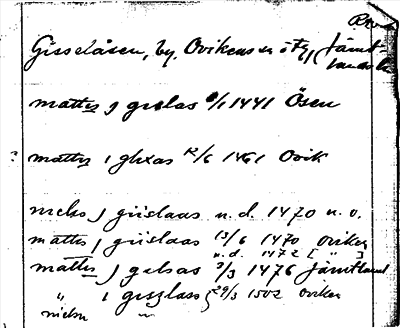 Gisselåsen, by, Ovikens sn o tg, (Jämt-
lands l.
mattis j gislas 6/1 1441 Ösen
? mattis i glixas 12/6 1461 Ovik
nielss j giislaas u. d. 1470 u. o.
mattis j giislaas 13/6 1470 oviken
u. d. 1472 [ " ]
mattis j galsas 3/3 1476 Jämtland
" i giszlass } 29/3 1502 oviken
nielss "